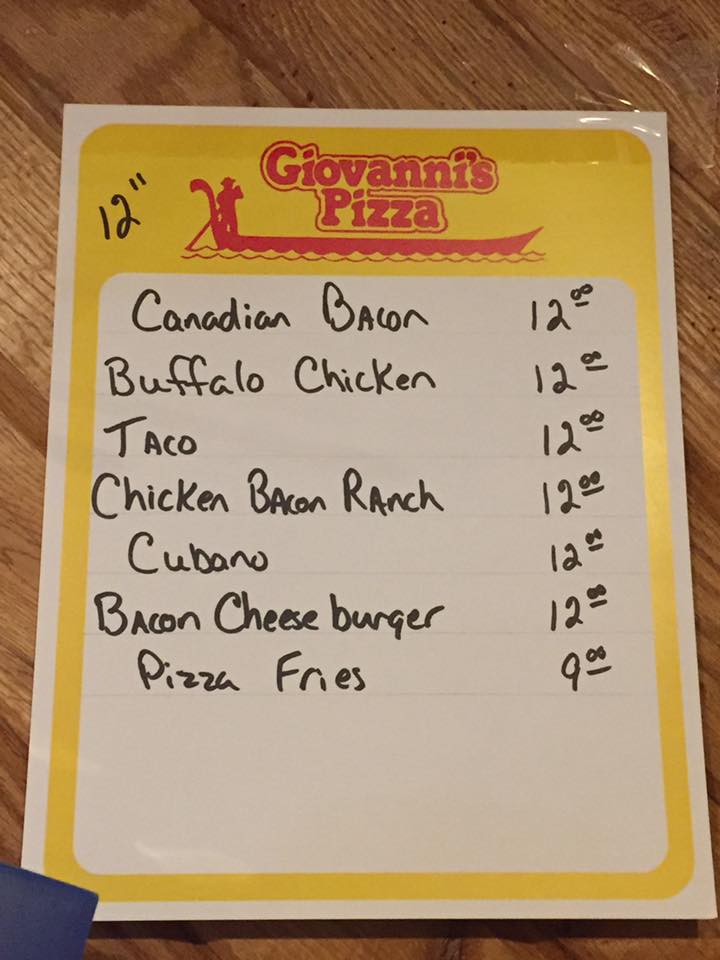 12"
Giovanni's
Pizza
Canadian Bacon 12.00
Buffalo Chicken 12.00
Taco 12.00
Chicken Bacon Ranch 12.00
Cubano 12.00
Bacon Cheese burger 12.00
Pizza Fries 9.00